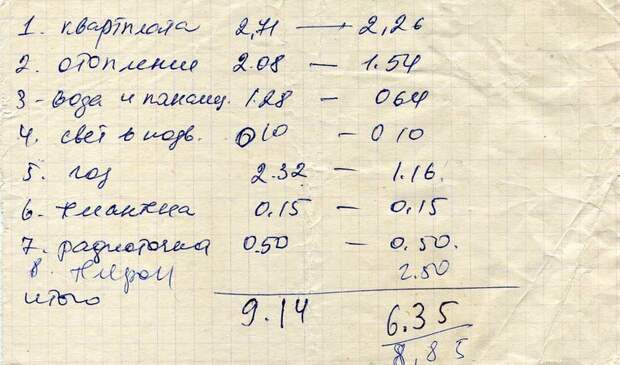 1. квартплата 2,71 → 2,26
2. отопление 2.08 — 1.54
3 - вода и канализ. 1.28 — 064
4. свет в подв. 010 — 010
5. газ 2.32 — 1.16.
6. 0.15 — 0.15
7. радиоточка 0.50 — 0.50.
8. 2.50
итого 9.14 6.35
8,85